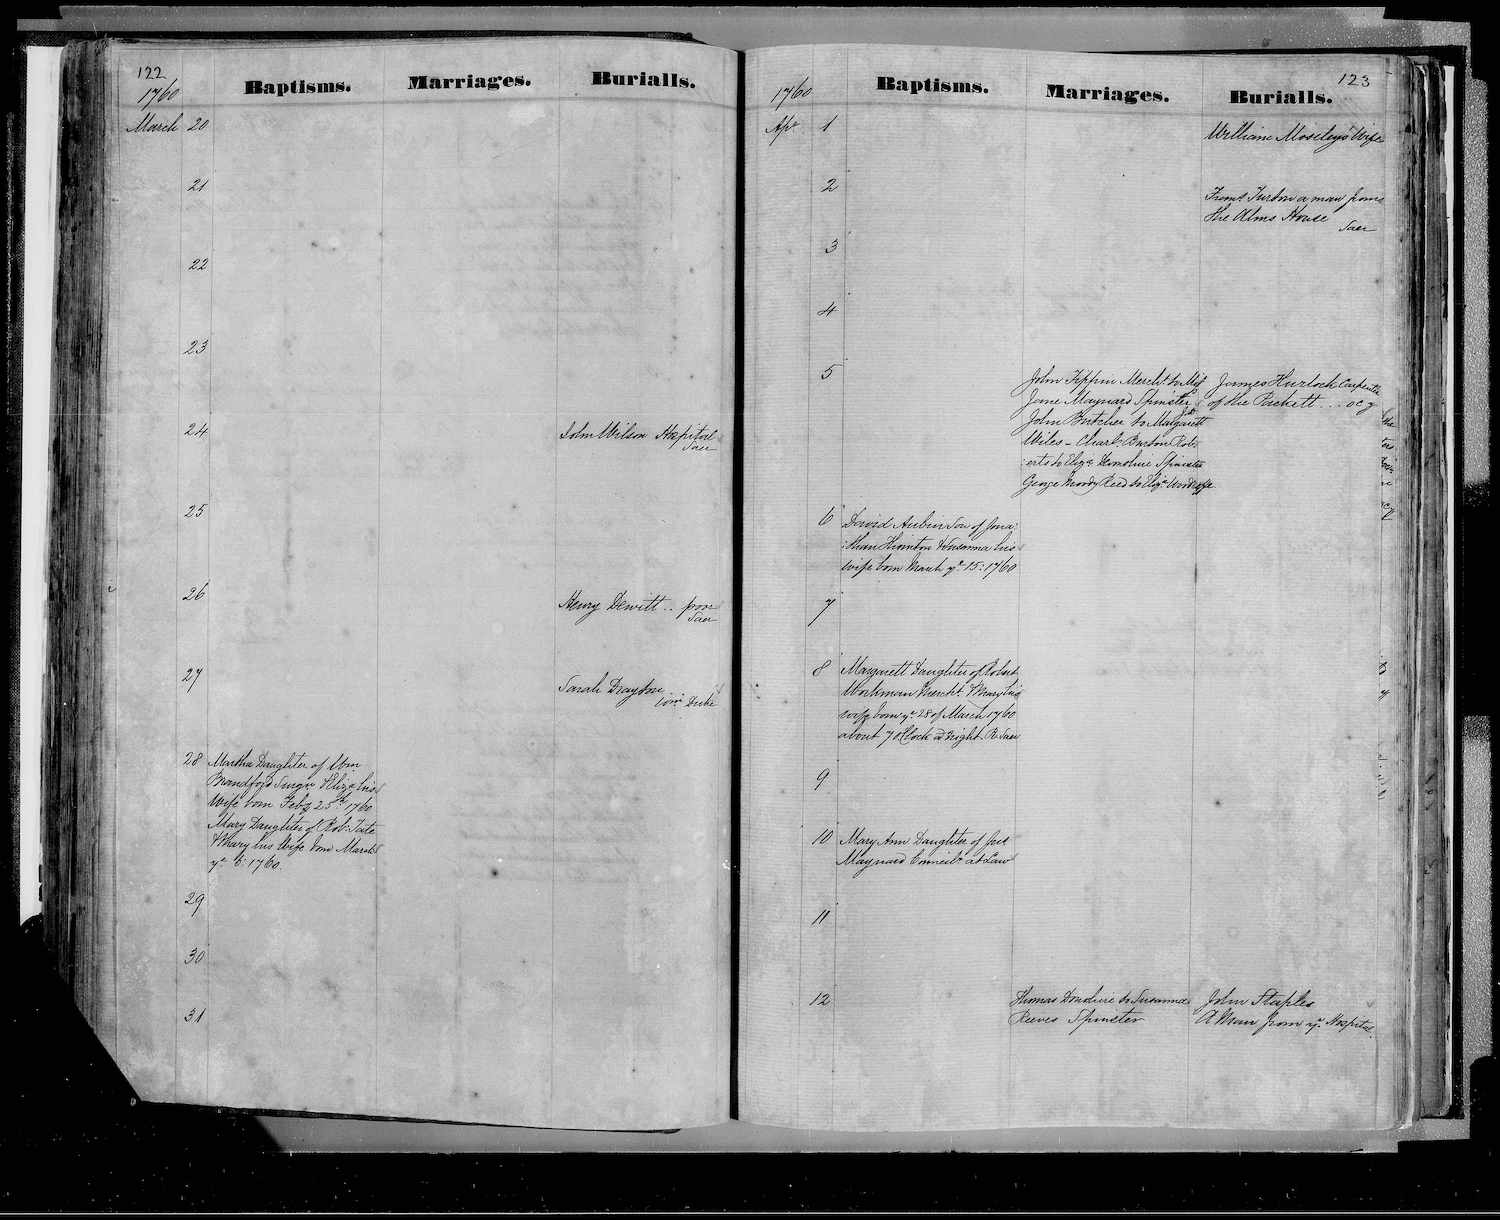 122
1760
Baptisms. Marriages. Burialls.
March 20
21
22
23
24
John Wilson Hospital
Saer
25
26
Henry Dewitt .. poor
Saer
27
Sarah Drayton
Wm Duke
28
Martha Daughter of Wm
Brandford Surgn & Eliza his
Wife born Feby 25th 1760
Mary Daughter of Robt Tate
& Mary his Wife born March
ye 6: 1760
29
30
31
123
1760
Baptisms. Marriages. Burialls.
Apr 1
William Moseleys Wife
2
a man from
the Alms House
Saer
3
4
5
John Mercht to
Jane Maynard Spinster
John Butcher to Margarett
Wiles - Charls Burton Rob-
erts to Eliza Spinster
George Moody Reed to Eliza
James Hurlock Carpenter
of the Packett ...
6
David Aubin Son of Jona:
:than & Susanna his
wife born March ye 15: 1760
7
8
Margarett Daughter of Robert
Workman Mercht & Mary his
wife born ye 28 of March 1760
about 7 o'Clock at Night R. Saer
9
10
Mary Ann Daughter of
Maynard at Law
11
12
Thomas to Susanna
Reeves Spinster
John Staples
A Man from ye Hospital